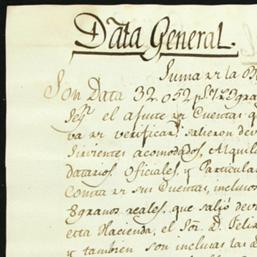 Data General.
Suma rr la
Son Data 32.052 ps
el ajuste rr Cuentas q
va rr verificar, salieron dev
Sirvientes acomodados, Alquil
datarios, Oficiales, y Particula
Consta rr sus Cuentas, inclusos
8 granos reales, que salió dev
esta Hacienda, el Sor. D. Feliz
y tambien son inclusas las